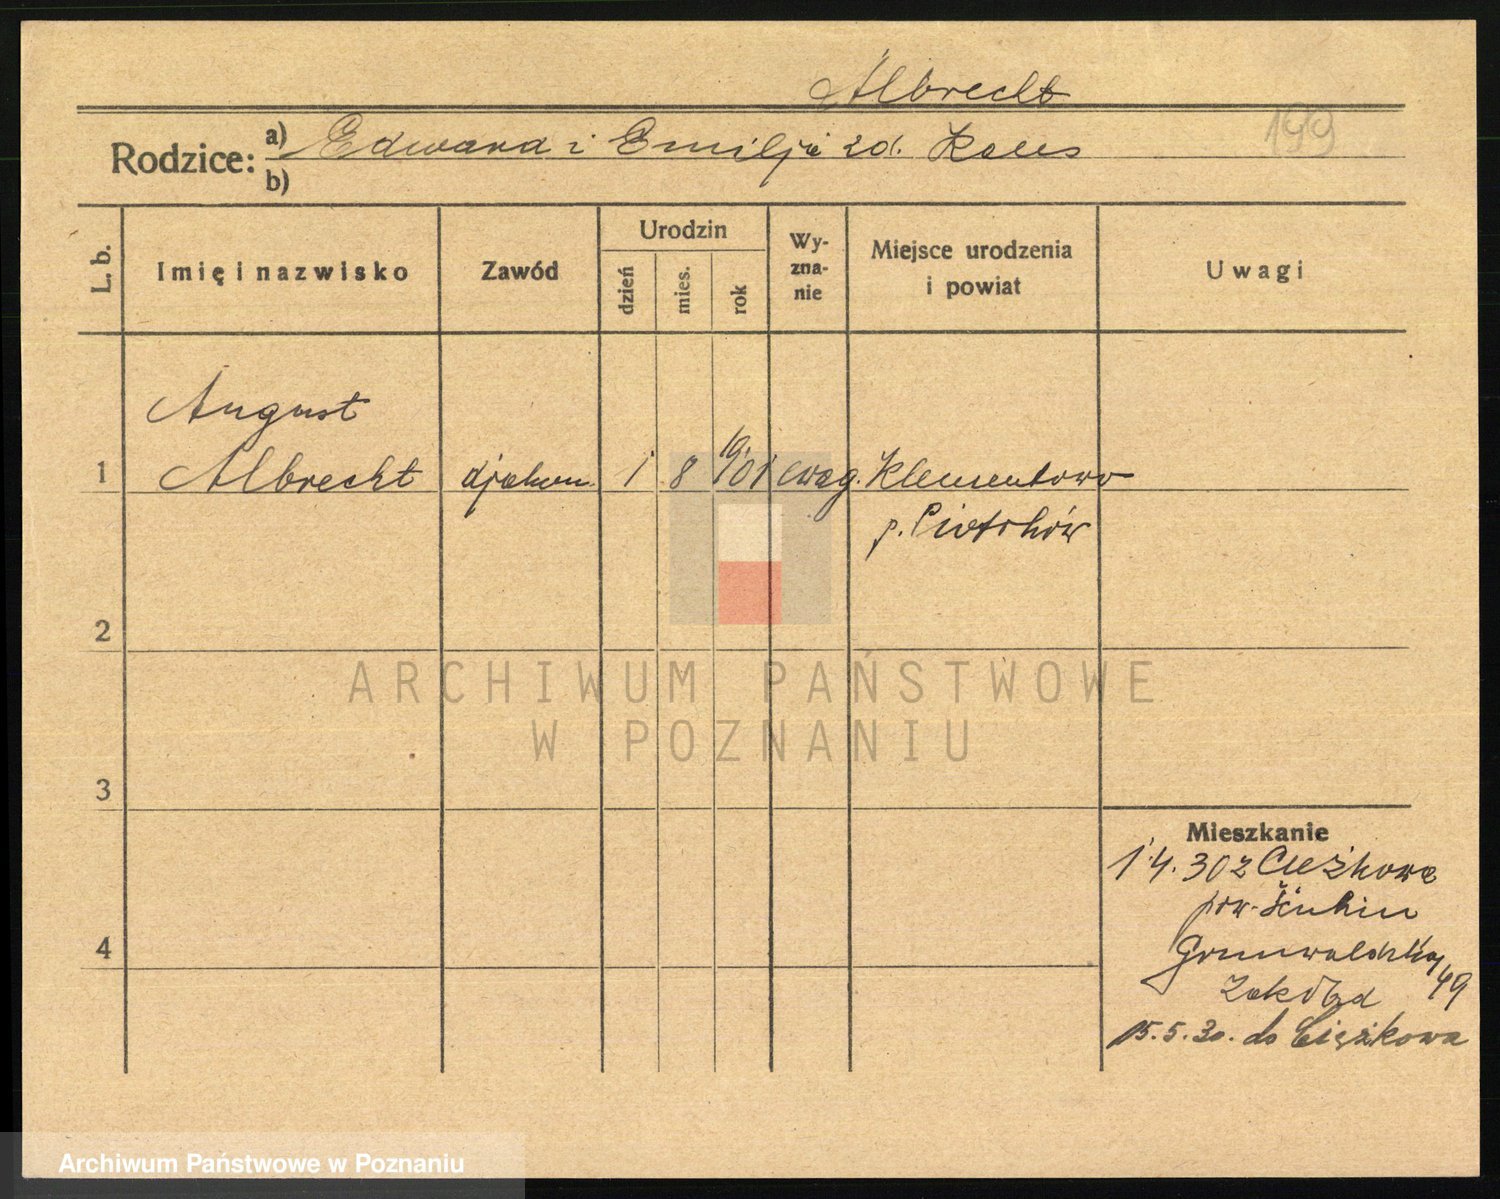 Albrecht
199
Rodzice: a) Edward i Emilja zd. Kaus
b)
L. b.
Imię i nazwisko
Zawód
Urodzin
dzień
mies.
rok
Wy-
zna-
nie
Miejsce urodzenia
i powiat
Uwagi
August
1 Albrecht djakon. 1 8 1901 ewag. Klementowo
p. Piotrków
2
ARCHIWUM PAŃSTWOWE
W POZNANIU
3
Mieszkanie
1.4.30 z Cieżkowa
pow. Szubin
4
Grunwaldzka 49
Zakład
15.5.30. do Ciężkowa
Archiwum Państwowe w Poznaniu